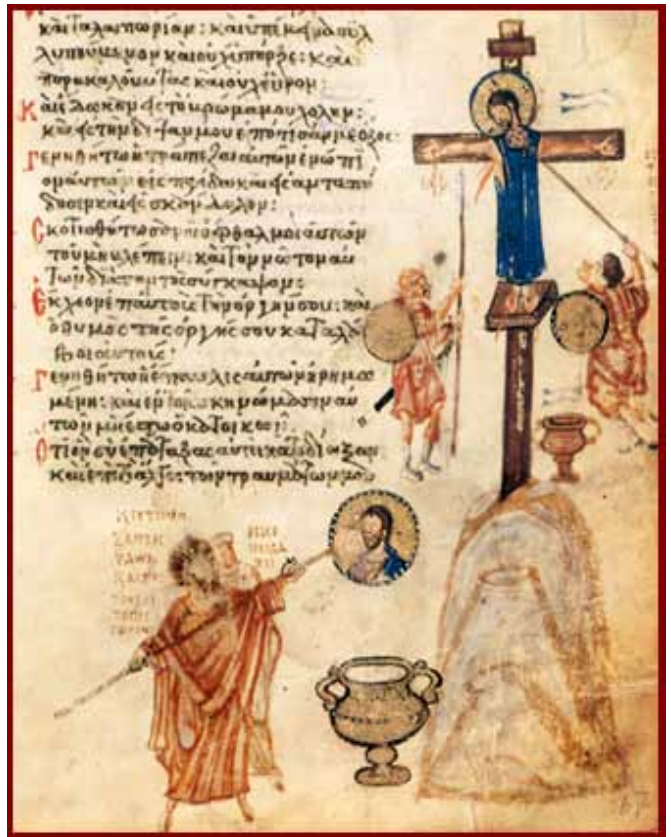 καὶ ταλαιπωρίαν: καὶ ὑπέμεινα συλ
λυπούμενον καὶ οὐχ ὑπῆρξε: καὶ
παρακαλοῦντας καὶ οὐχ εὗρον:
Καὶ ἔδωκαν εἰς τὸ βρῶμά μου χολήν:
καὶ εἰς τὴν δίψαν μου ἐπότισάν με ὄξος:
Γενηθήτω ἡ τράπεζα αὐτῶν ἐνώπι
ον αὐτῶν εἰς παγίδα καὶ εἰς ἀνταπό
δοσιν καὶ εἰς σκάνδαλον:
Σκοτισθήτωσαν οἱ ὀφθαλμοὶ αὐτῶν
τοῦ μὴ βλέπειν: καὶ τὸν νῶτον αὐ
τῶν διὰ παντὸς σύγκαμψον:
Ἔκχεον ἐπ' αὐτοὺς τὴν ὀργήν σου: καὶ
ὁ θυμὸς τῆς ὀργῆς σου καταλά
βοι αὐτούς:
Γενηθήτω ἡ ἔπαυλις αὐτῶν ἠρημω
μένη: καὶ ἐν τοῖς σκηνώμασιν αὐ
τῶν μὴ ἔστω ὁ κατοικῶν:
Ὅτι ὃν σὺ ἐπάταξας αὐτοὶ κατεδίωξαν
καὶ ἐπὶ τὸ ἄλγος τῶν τραυμάτων μου
67